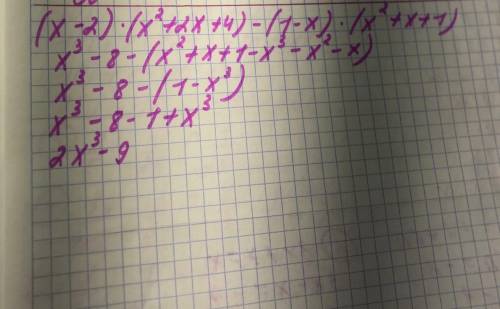 (x-2)·(x²+2x+4)-(1-x)·(x²+x+1)
x³-8-(x²+x+1-x³-x²-x)
x³-8-(1-x³)
x³-8-1+x³
2x³-9